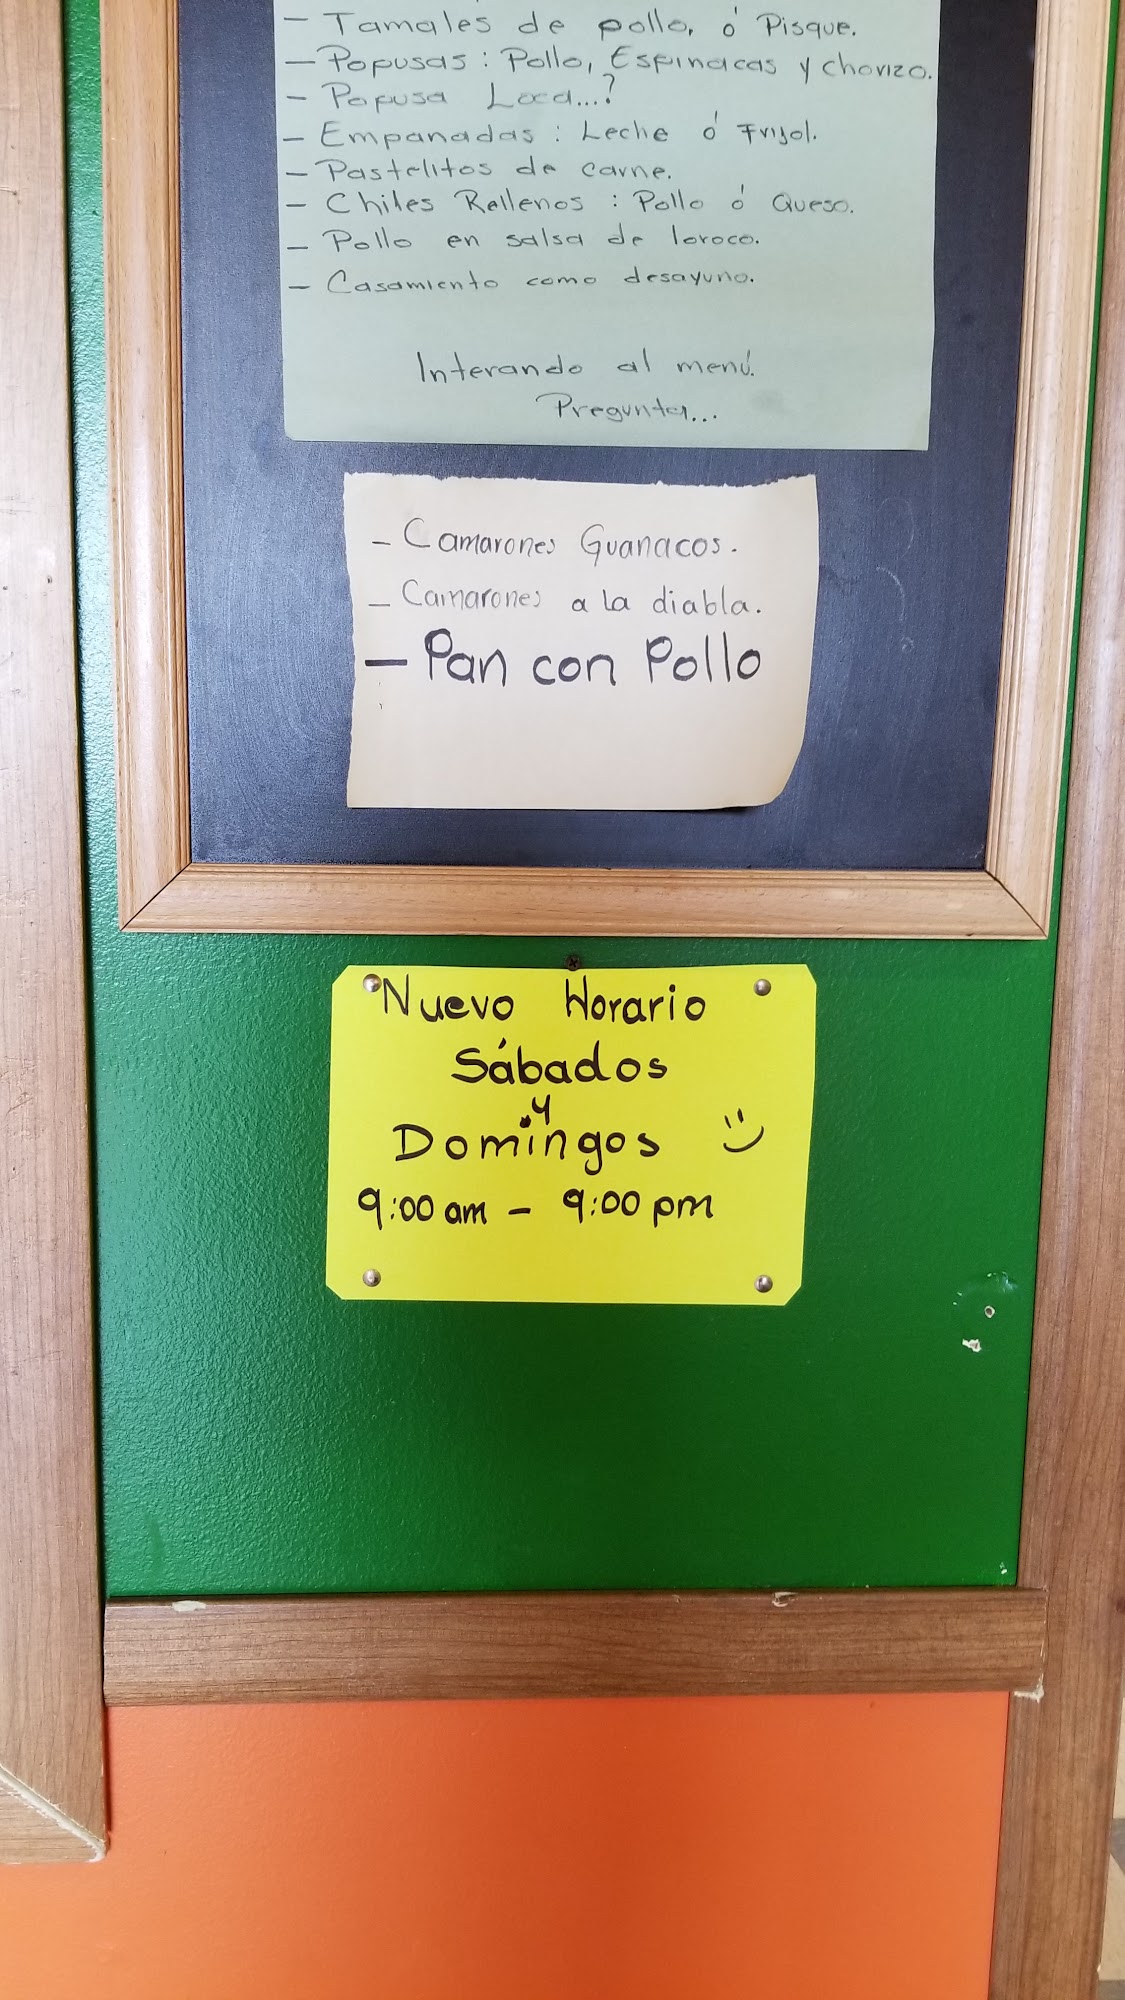 - Tamales de pollo, ó Pisque.
- Popusas: Pollo, Espinacas y chorizo.
- Popusa Loca...?
- Empanadas: Leche ó Frijol.
- Pastelitos de carne.
- Chiles Rellenos: Pollo ó Queso.
- Pollo en salsa de loroco.
- Casamiento como desayuno.
Interando al menú.
Pregunta...
- Camarones Guanacos.
- Camarones a la diabla.
- Pan con Pollo
Nuevo Horario
Sábados
y
Domingos
9:00 am - 9:00 pm